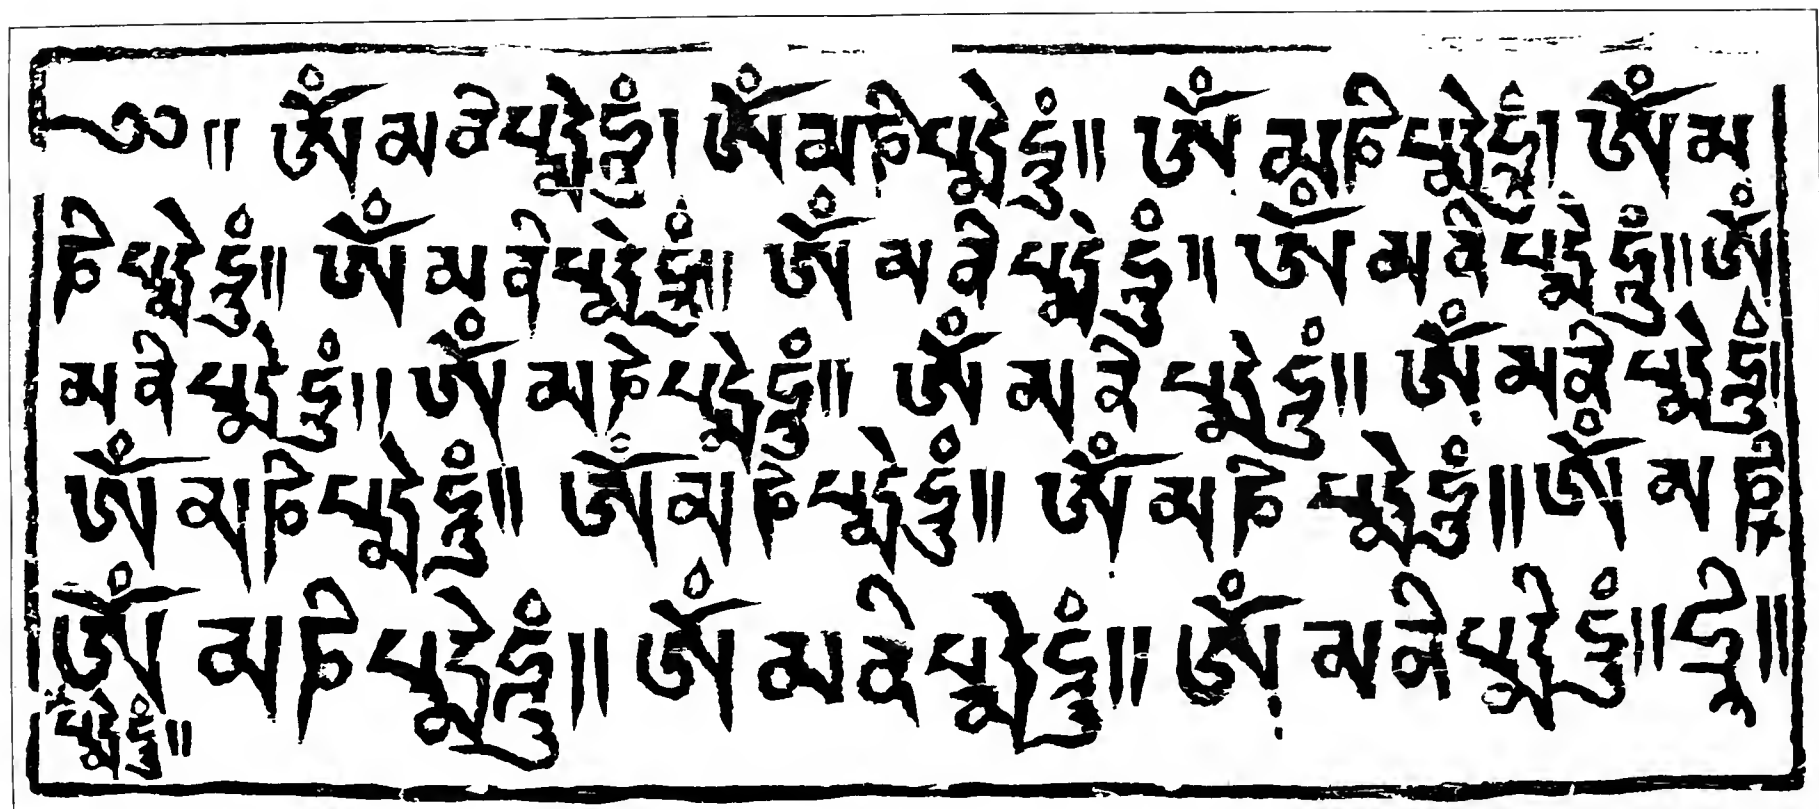 ༄༎ ཨོཾམནིཔདྨེཧཱུཾ། ཨོཾམཎིཔདྨེཧཱུཾ༎ ཨོཾམཎིཔདྨེཧཱུཾ། ཨོཾམ
ཎིཔདྨེཧཱུཾ༎ ཨོཾམནིཔདྨེཧཱུཾ༎ ཨོཾམནིཔདྨེཧཱུཾ༎ ཨོཾམནིཔདྨེཧཱུཾ༎ ཨོཾ
མནིཔདྨེཧཱུཾ༎ ཨོཾམཎིཔདྨེཧཱུཾ༎ ཨོཾམནིཔདྨེཧཱུཾ༎ ཨོཾམནིཔདྨེཧཱུཾ།
ཨོཾམཎིཔདྨེཧཱུཾ༎ ཨོཾམཎིཔདྨེཧཱུཾ༎ ཨོཾམཎིཔདྨེཧཱུཾ༎ ཨོཾམཎི
ཨོཾམཎིཔདྨེཧཱུཾ༎ ཨོཾམནིཔདྨེཧཱུཾ༎ ཨོཾམནིཔདྨེཧཱུཾ༎ ཧྲི༎
པདྨེཧཱུཾ༎